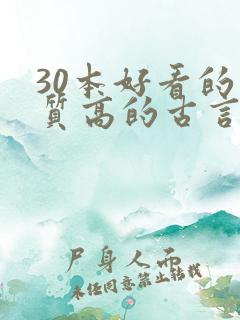 30本好看的
质高的古言
尸身人而
未经同意禁止转载